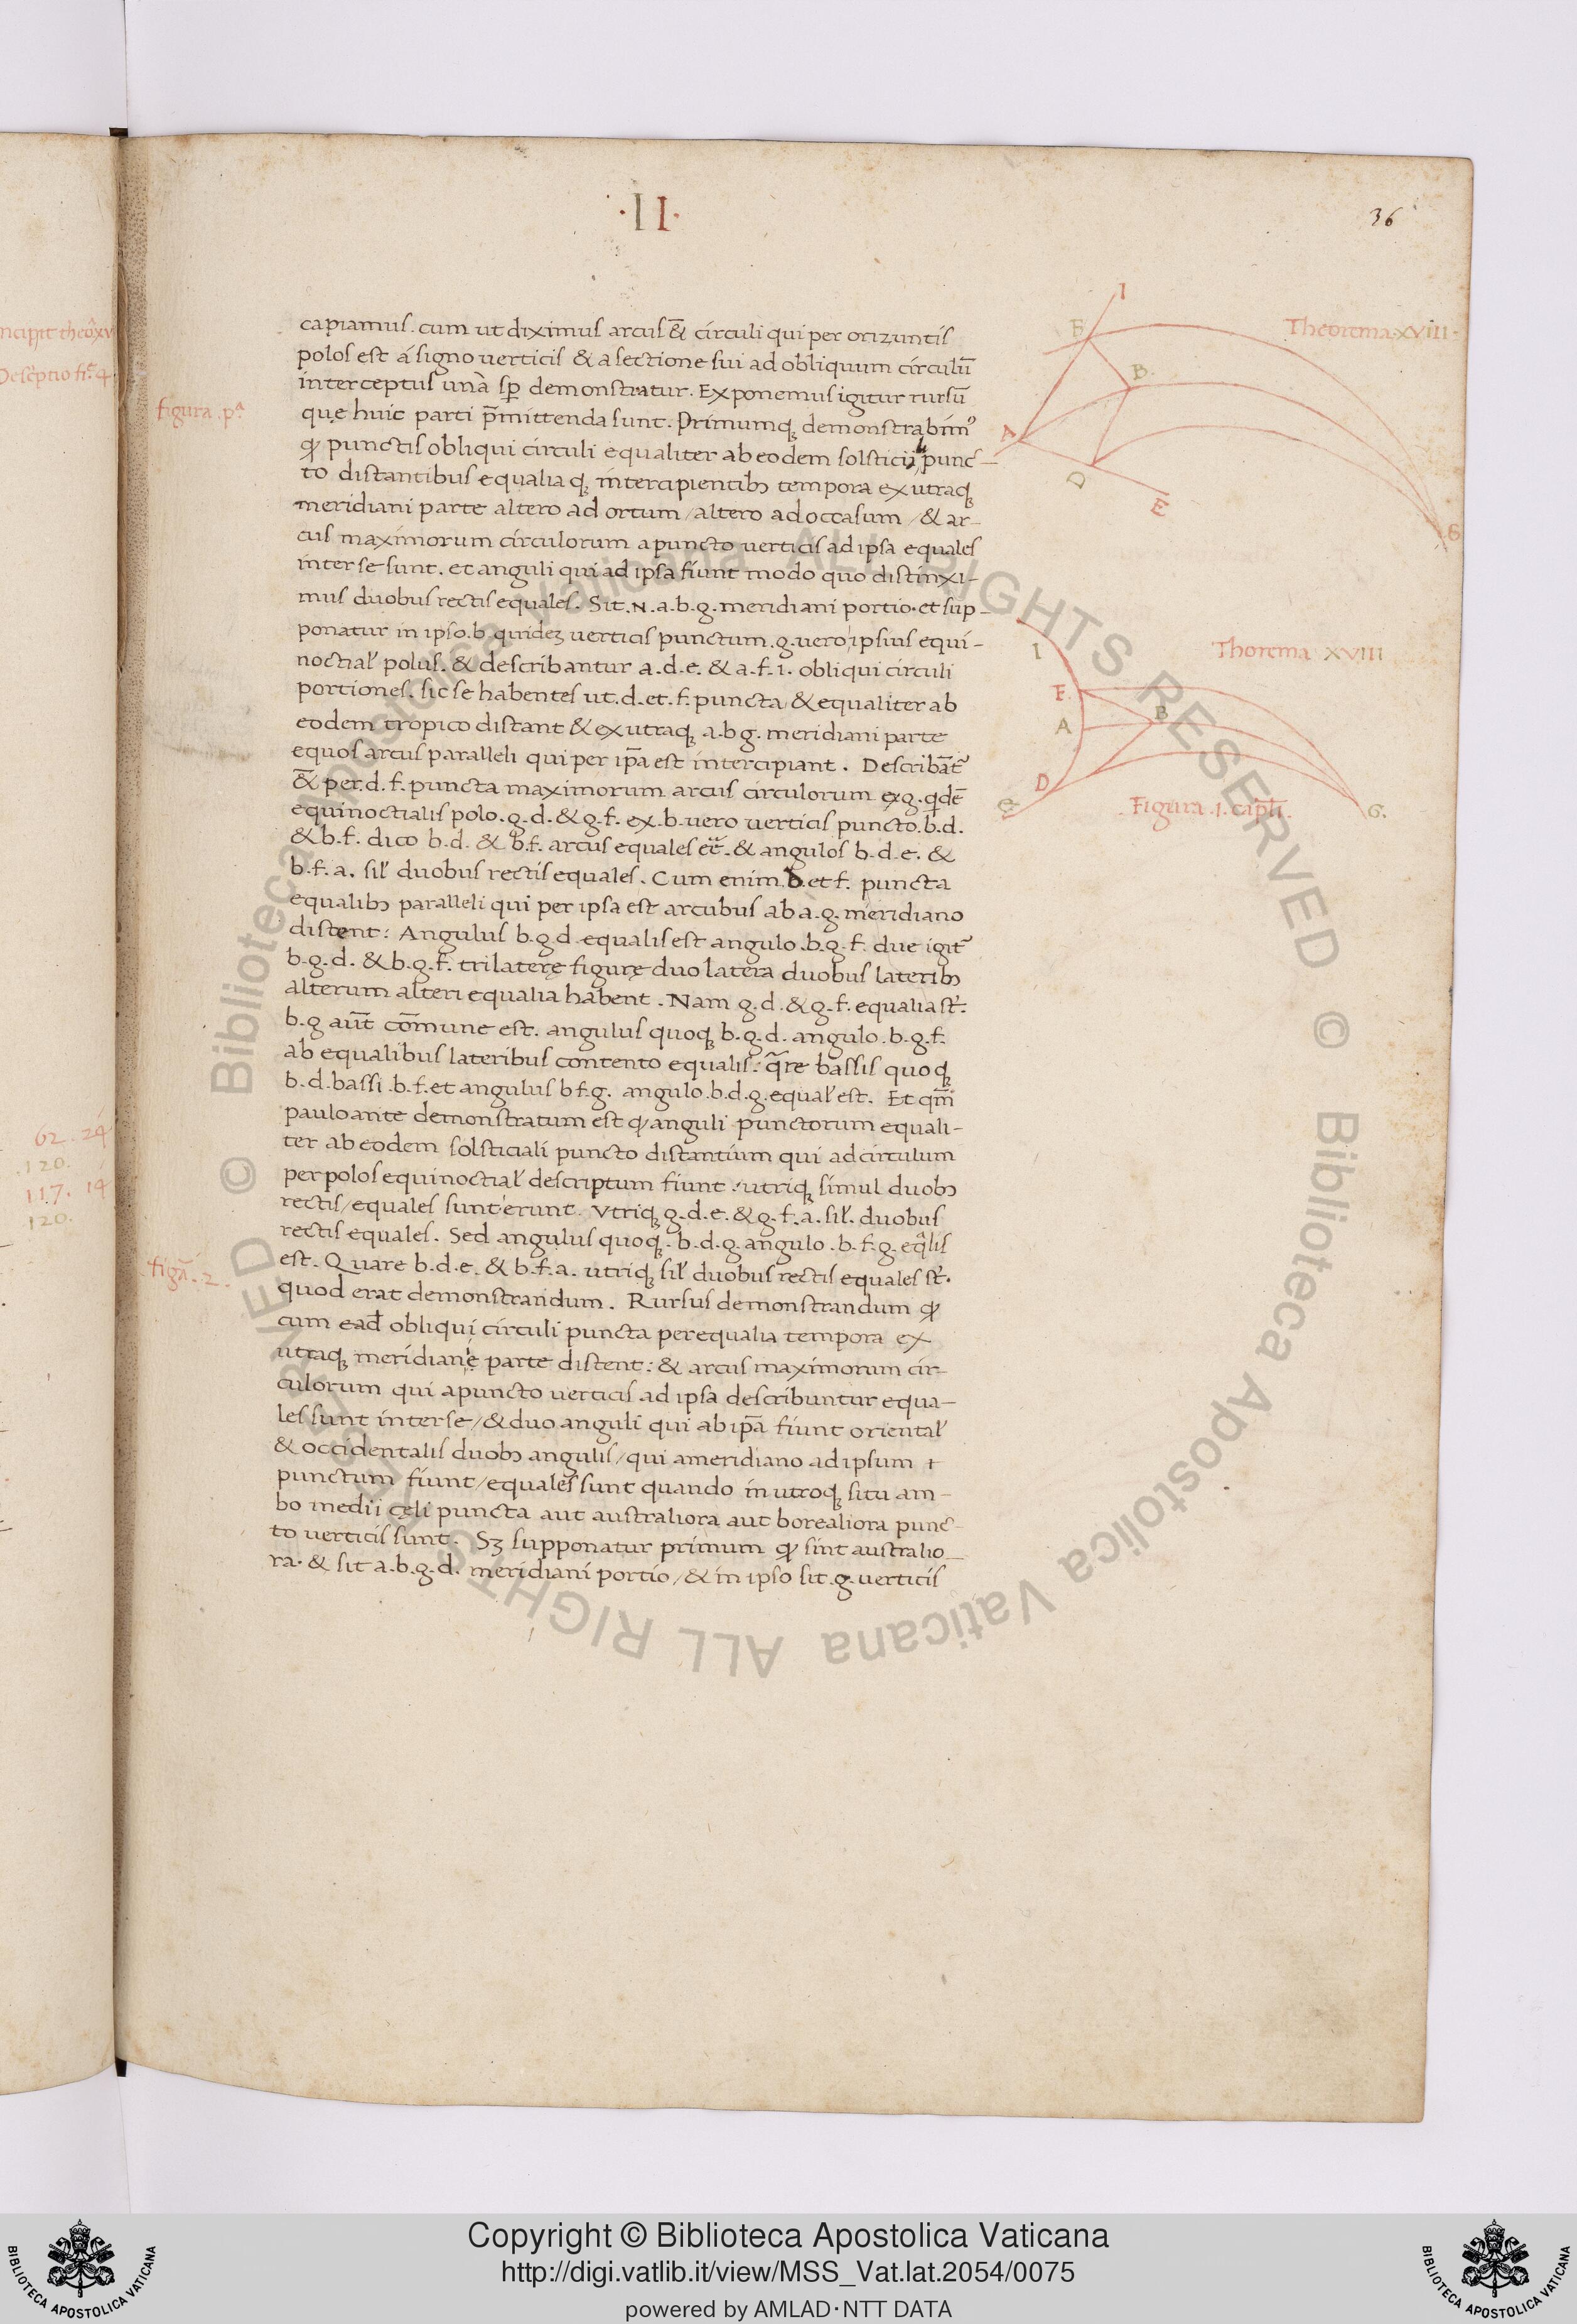 ·II·
36
ncipit theo᷑xv
Descp̃tio fi.ᵉ 4
figura .pᵃ
capiamus. cum ut diximus arcus &̃ circuli qui per orizuntis
polos est á signo verticis & a sectione sui ad obliquum circulũ
interceptus unà sp̱ demonstratur. Exponemus igitur rursũ
quę huic parti p̃mittenda sunt. Primumq; demonstrabim᷒
ꝙ punctis obliqui circuli equaliter ab eodem solsticii punc̃–
to distantibus equalia q; intercipientibꝫ tempora ex utraq;
meridiani parte altero ad ortum / altero ad occasum / & ar–
cus maximorum circulorum a puncto verticis ad ipsa equales
inter se sunt. et anguli qui ad ipsa fiunt modo quo distinxi–
mus duobus rectis equales. Sit .N. a.b.g. meridiani portio. et sup–
ponatur in ipso .b. quidez verticis punctum .g. uero ipsius equi–
noctial̓ polus. & describantur a.d.e. & a.f.i. obliqui circuli
portiones. sic se habentes ut .d. et .f. puncta & equaliter ab
eodem tropico distant & ex utraq; a.b g. meridiani parte
equos arcus paralleli qui per ip̃a est intercipiant. Describãt᷑
&̃ per .d.f. puncta maximorum arcus circulorum ex g. qdẽ
equinoctialis polo .g.d. & g.f. ex .b. uero verticis puncto .b.d.
& b.f. dico b.d. & b.f. arcus equales eẽ. & angulos b.d.e. &
b.f.a. sil̓ duobus rectis equales. Cum enim D. et f. puncta
equalibꝫ paralleli qui per ipsa est arcubus ab a.g. meridiano
distent: Angulus b.g.d equalis est angulo .b.g.f. due igit᷑
b.g.d. & b.g.f. trilaterę figurę duo latera duobus lateribꝫ
alterum alteri equalia habent. Nam g.d. & g.f. equalia st̓.
b.g aũt cõmune est. angulus quoq; b.g.d. angulo .b.g.f.
ab equalibus lateribus contento equalis: q̃re bassis quoq;
b.d. bassi .b.f. et angulus b f.g. angulo .b.d.g. equal̓ est. Et qm̃
paulo ante demonstratum est ꝙ anguli punctorum equali–
ter ab eodem solsticiali puncto distantium qui ad circulum
per polos equinoctial̓ descriptum fiunt / utriq; simul duobꝫ
rectis / equales sunt erunt. Vtriq; g.d.e. & g.f.a. sil̓. duobus
rectis equales. Sed angulus quoq; b.d.g. angulo .b.f.g. eq̃lis
est. Quare b.d.e. & b.f.a. utriq; sil̓ duobus rectis equales st̓.
quod erat demonstrandum. Rursus demonstrandum ꝙ
cum ead̓ obliqui circuli puncta per equalia tempora ex
utraq; meridiani parte distent: & arcus maximorum cir–
culorum qui a puncto verticis ad ipsa describuntur equa–
les sunt inter se / & duo anguli qui ab ip̃a fiunt oriental̓
& occidentalis duobꝫ angulis / qui a meridiano ad ipsum +
punctum fiunt / equales sunt quando in utroq; situ am–
bo medii cęli puncta aut australiora aut borealiora punc̃–
to verticis sunt. Sꝫ supponatur primum ꝙ sint australio–
ra. & sit a.b.g.d. meridiani portio / & in ipso sit .g. verticis
62. 24
120.
117. 14
120.
figã. 2.
I
E
B.
A
D
E
G
Theorema XVIII
I
F.
A
B
D
e
G.
Thorema XVIII
Figura .1. capti̓.
© Biblioteca Apostolica Vaticana ALL RIGHTS RESERVED © Biblioteca Apostolica Vaticana ALL RIGHTS RESERVED
Copyright © Biblioteca Apostolica Vaticana
http://digi.vatlib.it/view/MSS_Vat.lat.2054/0075
powered by AMLAD·NTT DATA
BIBLIOTECA APOSTOLICA VATICANA
BIBLIOTECA APOSTOLICA VATICANA